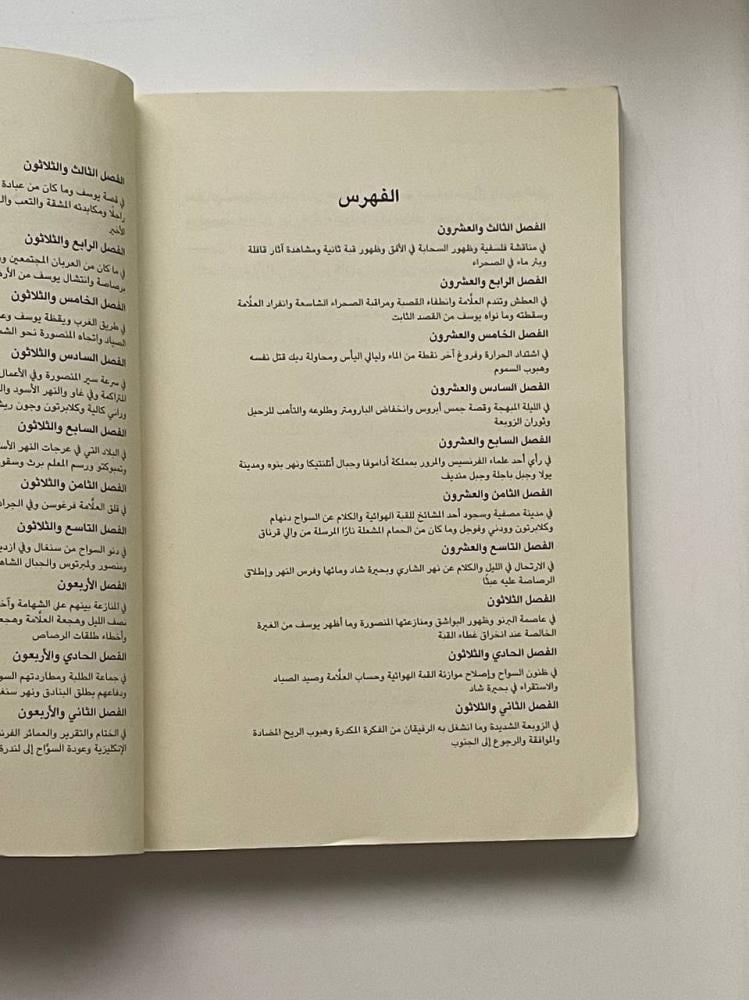 الفهرس
الفصل الثالث والعشرون
في مناقشة فلسفية وظهور السحابة في الأفق وظهور قبة ثانية ومشاهدة آثار قافلة
وبئر ماء في الصحراء
الفصل الرابع والعشرون
في العطش وتندم العلَّامة وانطفاء القصبة ومراقبة الصحراء الشاسعة وانفراد العلَّامة
وسقطته وما نواه يوسف من القصد الثابت
الفصل الخامس والعشرون
في اشتداد الحرارة وفروغ آخر نقطة من الماء وليالي اليأس ومحاولة ديك قتل نفسه
وهبوب السموم
الفصل السادس والعشرون
في الليلة المبهجة وقصة جمس أبروس وانخفاض البارومتر وطلوعه والتأهب للرحيل
وثوران الزوبعة
الفصل السابع والعشرون
في رأي أحد علماء الفرنسيس والمرور بمملكة أداموفا وجبال أتلنتيكا ونهر بنوه ومدينة
يولا وجبل باجلة وجبل منديف
الفصل الثامن والعشرون
في مدينة مصفية وسجود أحد المشائخ للقبة الهوائية والكلام عن السواح دنهام
وكلابرتون وودني وفوجل وما كان من الحمام المشعلة نارًا المرسلة من والي قرناق
الفصل التاسع والعشرون
في الارتحال في الليل والكلام عن نهر الشاري وبحيرة شاد ومائها وفرس النهر وإطلاق
الرصاصة عليه عبثًا
الفصل الثلاثون
في عاصمة البرنو وظهور البواشق ومنازعتها المنصورة وما أظهر يوسف من الغيرة
الخالصة عند انخراق غطاء القبة
الفصل الحادي والثلاثون
في ظنون السواح وإصلاح موازنة القبة الهوائية وحساب العلَّامة وصيد الصياد
والاستقراء في بحيرة شاد
الفصل الثاني والثلاثون
في الزوبعة الشديدة وما انشغل به الرفيقان من الفكرة المكدرة وهبوب الريح المضادة
والموافقة والرجوع إلى الجنوب
الفصل الثالث والثلاثون
في قصة يوسف وما كان من عبادة
راحلًا ومكابدته المشقة والتعب
الأخير
الفصل الرابع والثلاثون
في ما كان من العربان المجتمعين
برصاصة وانتشال يوسف من
الفصل الخامس والثلاثون
في طريق الغرب ويقظة يوسف
الصياد واتجاه المنصورة نحو
الفصل السادس والثلاثون
في سرعة سير المنصورة وفي الأعمال
المتراكمة وفي غاو والنهر الأسود
وراني كالية وكلابرتون وجون
الفصل السابع والثلاثون
في البلاد التي في عرجات النهر
وتمبوكتو ورسم المعلم برث
الفصل الثامن والثلاثون
في قلق العلَّامة فرغوسن وفي
الفصل التاسع والثلاثون
في دنو السواح من سنغال وفي
ومنصور ولمبرتوس والجبال
الفصل الأربعون
في المنازعة بينهم على الشهامة
نصف الليل وهجعة العلَّامة
وأخطاء طلقات الرصاص
الفصل الحادي والأربعون
في جماعة الطلبة ومطاردتهم
ودفاعهم بطلق البنادق ونهر
الفصل الثاني والأربعون
في الختام والتقرير والعمائر
الإنكليزية وعودة السوَّاح إلى لندرة